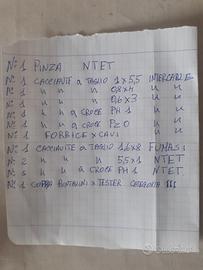 N° 1 PINZA NTET
N° 1 CACCIAVITE a TAGLIO 1x5,5 INTERCABLE
N° 1 " " " 0,8x4 " "
N° 1 " " " 0,6x3 " "
N° 1 " " a CROCE PH 1 " "
N° 1 " " a CROCE PZ 0 " "
N° 1 FORBICE x CAVI
N° 1 CACCIAVITE a TAGLIO 1,6x8 FUMASI
N° 2 " " " 5,5x1 NTET
N° " " a CROCE PH 1 NTET
N° 1 COPPIA PUNTALINI x TESTER CATEGORIA III
subito